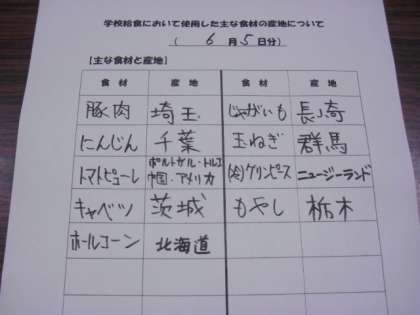 学校給食において使用した主な食材の産地について
( 6月5日分)
【主な食材と産地】
食材 産地 食材 産地
豚肉 埼玉 じゃがいも 長崎
にんじん 千葉 玉ねぎ 群馬
トマトピューレ ポルトガル・トルコ 中国・アメリカ (冷)グリンピース ニュージーランド
キャベツ 茨城 もやし 栃木
ホールコーン 北海道